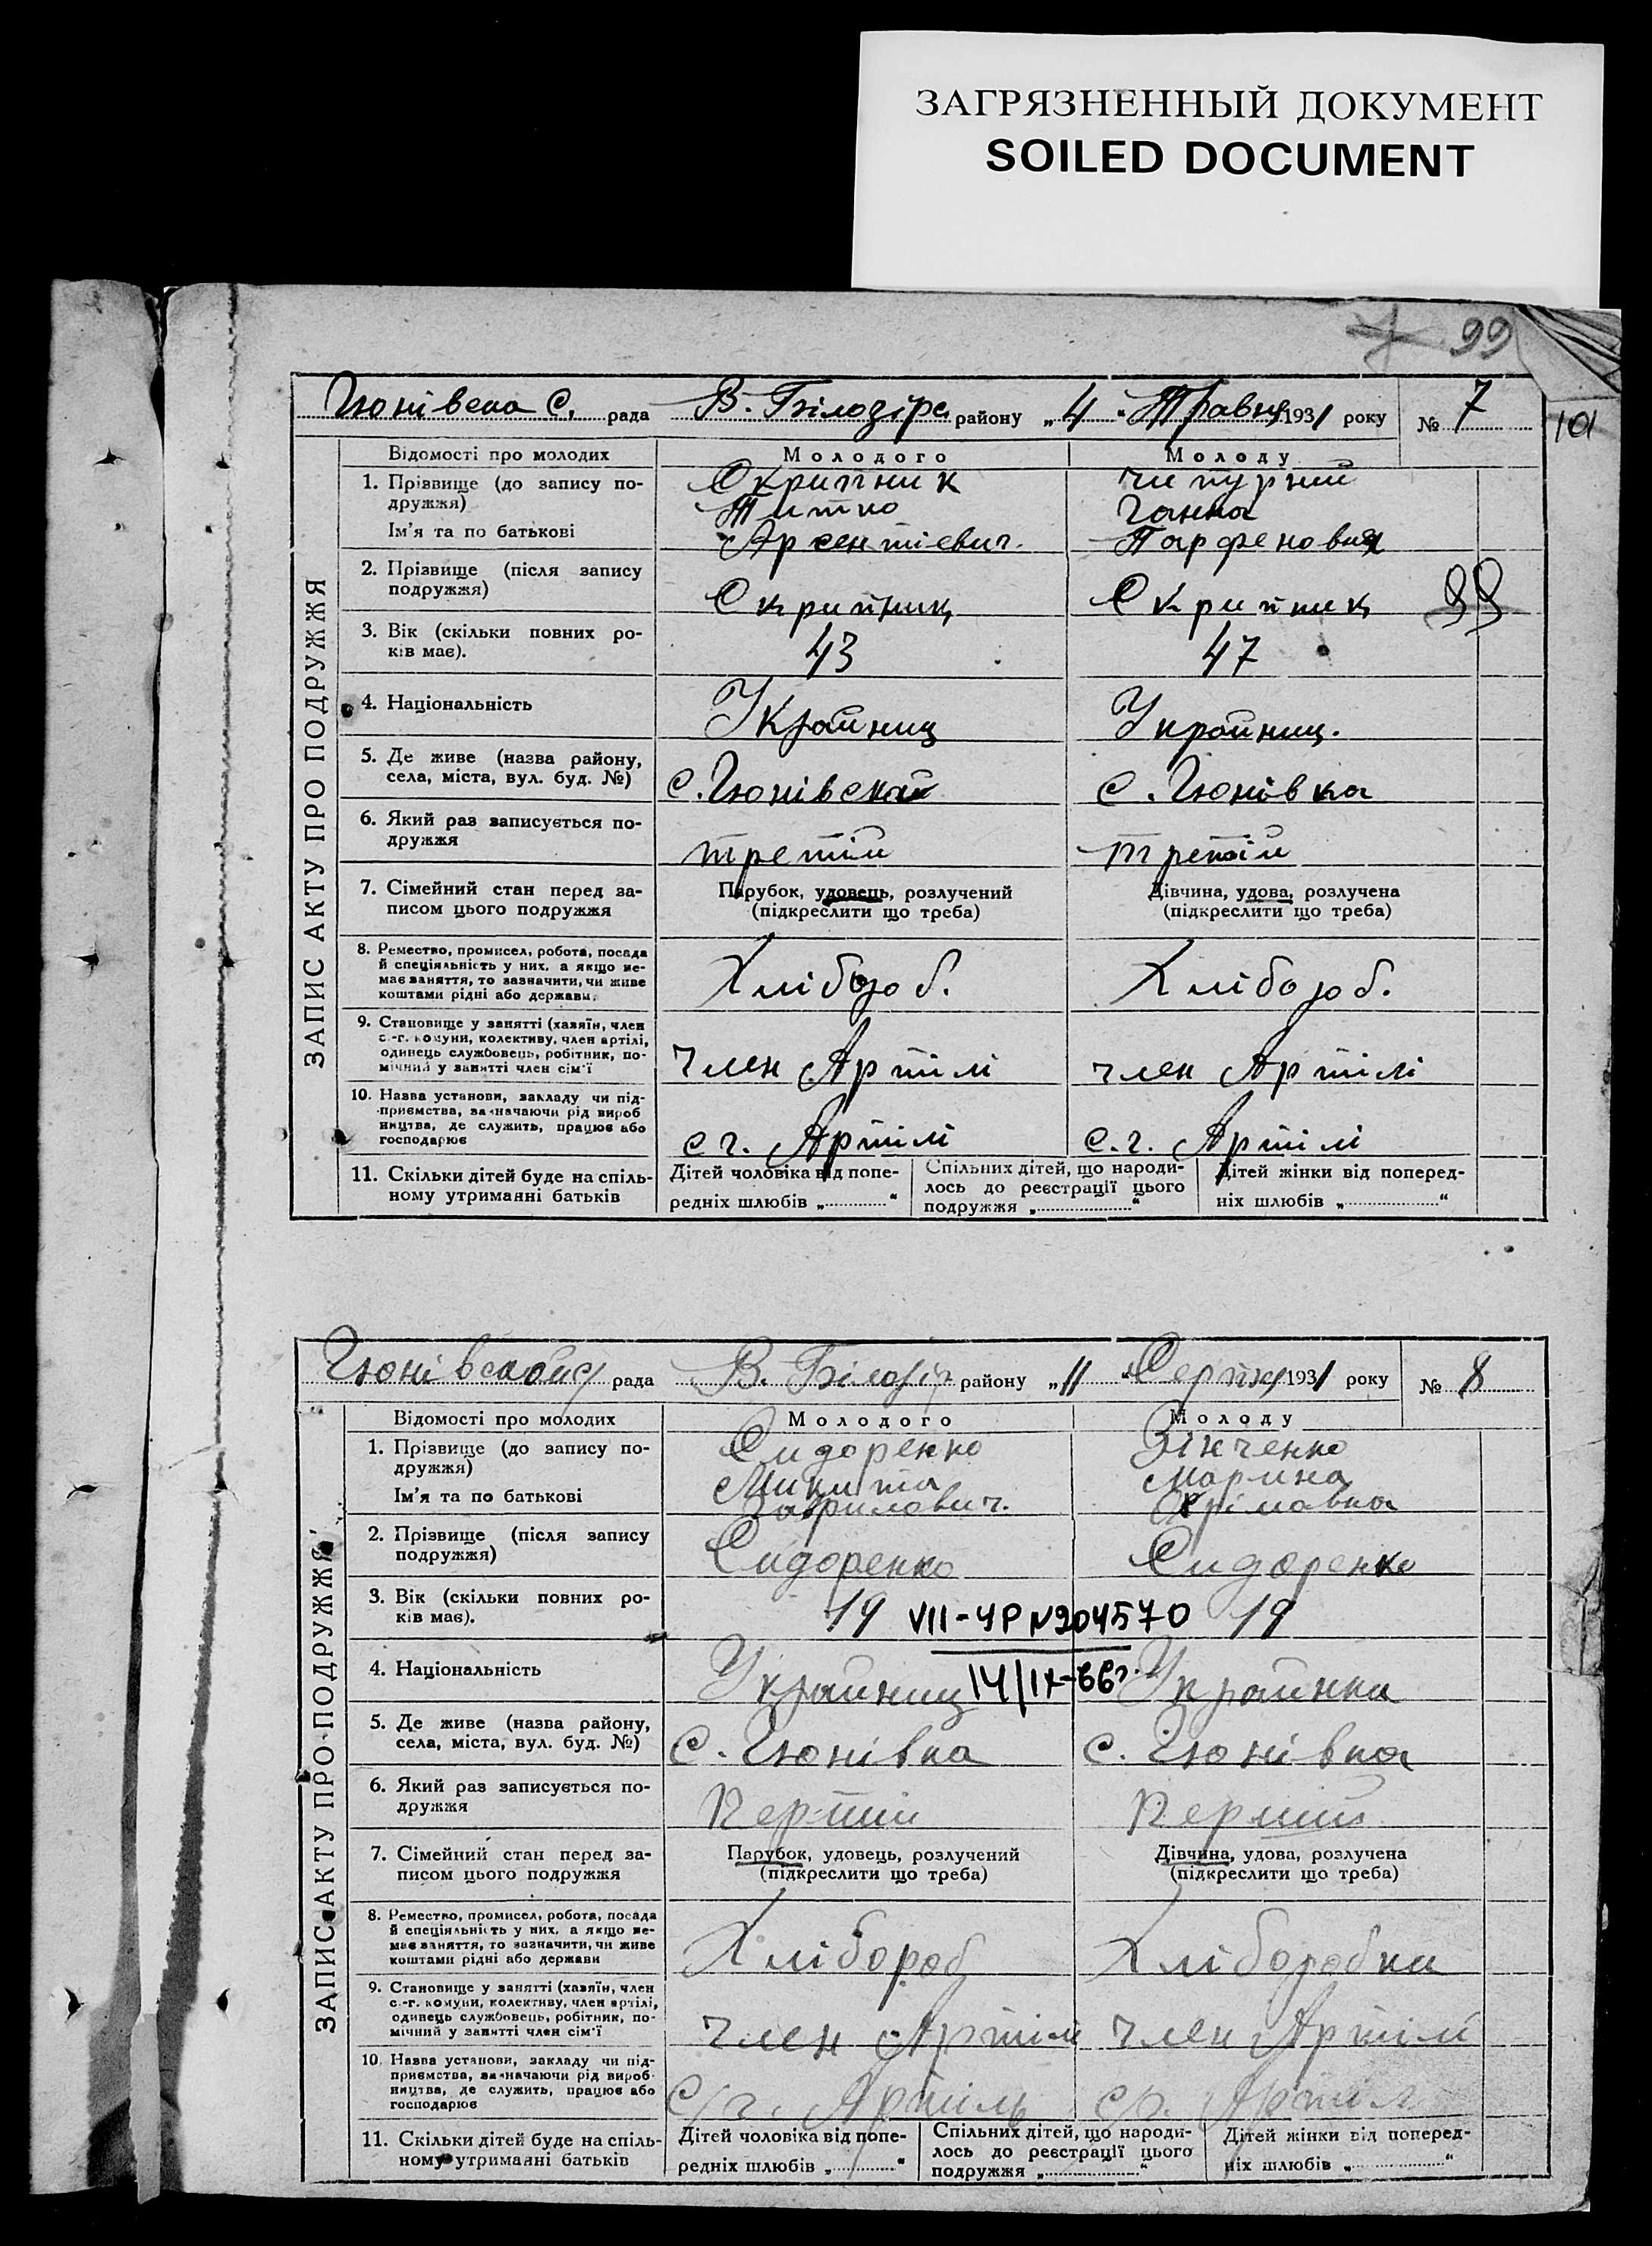 ЗАГРЯЗНЕННЫЙ ДОКУМЕНТ
SOILED DOCUMENT
99
101
Гюнівска С. рада В. Білозірс району „ 4 “ Травня 1931 року № 7
ЗАПИС АКТУ ПРО ПОДРУЖЖЯ
Відомості про молодих Молодого Молоду
1. Прізвище (до запису по- Скрипник Чипурний
дружжя) Титко Ганна
Ім'я та по батькові Арсентіевич. Парфеновня
2. Прізвище (після запису
подружжя) Скрипник Скрипник 99
3. Вік (скільки повних ро-
ків має). 43 47
4. Національність Украйниц Украйниц.
5. Де живе (назва району,
села, міста, вул. буд. №) с. Гюнівскай с. Гюнівка
6. Який раз записується по-
дружжя третій третій
7. Сімейний стан перед за- Парубок, удовець, розлучений Дівчина, удова, розлучена
писом цього подружжя (підкреслити що треба) (підкреслити що треба)
8. Ремество, промисел, робота, посада
й спеціяльність у них, а якщо не-
має заняття, то зазначити, чи живе
коштами рідні або держави. Хлібороб. Хлібороб.
9. Становище у занятті (хазяїн, член
с.-г. комуни, колективу, член артілі,
одинець службовець, робітник, по-
мічний у занятті член сім'ї член Артілі член Артілі
10. Назва установи, закладу чи під-
приємства, зазначаючи рід вироб
ництва, де служить, працює або
господарює с г. Артілі с.г. Артілі
11. Скільки дітей буде на спіль- Дітей чоловіка від попе- Спільних дітей, що народи- Дітей жінки від поперед-
ному утриманні батьків редніх шлюбів „ “ лось до реєстрації цього ніх шлюбів „ “
подружжя „ “
Гюнівской рада В. Білозір району „ 11 “ Серпня 1931 року № 8
ЗАПИС АКТУ ПРО ПОДРУЖЖЯ
Відомості про молодих Молодого Молоду
1. Прізвище (до запису по- Сидоренко Зінченко
дружжя) Микита Марина
Ім'я та по батькові Гаврилович. Охрімовна
2. Прізвище (після запису
подружжя) Сидоренко Сидоренко
3. Вік (скільки повних ро-
ків має). 19 VII-УР №204570 19
4. Національність Украйниц 14/IX-66г. Украйнка
5. Де живе (назва району,
села, міста, вул. буд. №) с. Гюнівка с. Гюнівка
6. Який раз записується по-
дружжя Перший Перший
7. Сімейний стан перед за- Парубок, удовець, розлучений Дівчина, удова, розлучена
писом цього подружжя (підкреслити що треба) (підкреслити що треба)
8. Ремество, промисел, робота, посада
й спеціяльність у них, а якщо не-
має заняття, то зазначити, чи живе
коштами рідні або держави Хлібороб Хліборобка
9. Становище у занятті (хазяїн, член
с.-г. комуни, колективу, член артілі,
одинець службовець, робітник, по-
мічний у занятті член сім'ї член Артілі член Артілі
10. Назва установи, закладу чи під-
приємства, зазначаючи рід вироб-
ництва, де служить, працює або
господарює С/г. Артиль с/г. Артіл
11. Скільки дітей буде на спіль- Дітей чоловіка від попе- Спільних дітей, що народи- Дітей жінки від поперед-
ному утриманні батьків редніх шлюбів „ “ лось до реєстрації цього ніх шлюбів „ “
подружжя „ “